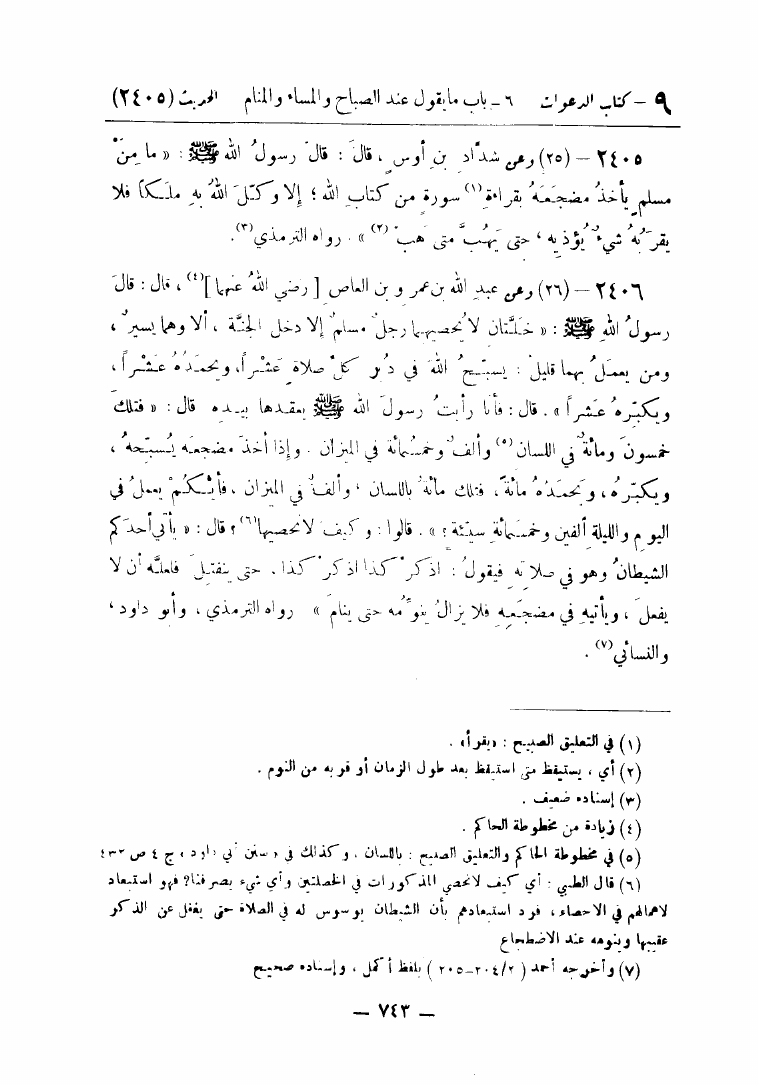 ٩ – كتاب الدعوات ٦ - باب ما يقول عند الصباح والمساء والمنام الحديث (٢٤٠٥)
٢٤٠٥ – (٢٥) وعن شدَّاد بنِ أوسٍ ، قالَ : قالَ رسولُ الله ﷺ : « ما مِنْ
مسلمٍ يأخذُ مضجَعَهُ بقراءةِ(١) سورةٍ من كتابِ الله ؛ إِلا وكَّلَ اللهُ بهِ ملَكاً فلا
يقرَبُهُ شيءٌ يُؤذيهِ ، حتى يَهُبَّ متى هَبَّ (٢) » . رواه الترمذي(٣).
٢٤٠٦ – (٢٦) وعن عبدِ الله بنِ عمرٍو بن العاص [ رضي اللهُ عنهما ](٤) ، قال : قالَ
رسولُ اللهِ ﷺ : « خَلَّتان لا يُحصيهما رجلٌ مسلمٌ إِلا دخل الجنَّة ، ألا وهما يسيرٌ ،
ومن يعملُ بهما قليلٌ : يسبّحُ اللهَ في دُبُرِ كلّ صلاةٍ عَشْراً، ويحمَدُهُ عَشْراً ،
ويكبّرهُ عَشراً » . قال : فأنا رأيتُ رسولَ الله ﷺ يعقدها بيده قال : « فتلكَ
خمسونَ ومائةٌ في اللسان (٥) وألفٌ وخمسُمائة في الميزان . وإِذا أخذَ مضجعَه يُسبّحهُ ،
ويكبّرُه ، ويَحمَدُهُ مائةً ، فتلك مائةٌ باللسان ، وألفٌ في الميزان ، فأيُّكُمْ يعملُ في
اليومِ والليلةِ ألفين وخمسَمائةِ سيّئة ؟ » . قالوا : وكيفَ لا نحصيها(٦) ؟ قال : « يأتي أحدَكم
الشيطانُ وهو في صلاتِهِ فيقولُ : اذكرْ كذا اذكرْ كذا . حتى ينفتِلَ فلعلَّه أن لا
يفعلَ ، ويأتيهِ في مضجَعِهِ فلا يزالُ ينوِّمُه حتى ينامَ » رواه الترمذي ، وأبو داود ،
والنسائي(٧) .
(١) في التعليق الصبيح : «يقرأ» .
(٢) أي ، يستيقظ متى استيقظ بعد طول الزمان أو قربه من النوم .
(٣) إسناده ضعيف .
(٤) زيادة من مخطوطة الحاكم .
(٥) في مخطوطة الحاكم والتعليق الصبيح : باللسان ، وكذلك في «سنن أبي داود» ج ٤ ص ٤٣٢
(٦) قال الطيبي : أي كيف لا نحصي المذكورات في الخصلتين وأي شيء يصرفنا؟ فهو استبعاد
لاهمالهم في الاحصاء ، فرد استبعادهم بأن الشيطان يوسوس له في الصلاة حتى يغفل عن الذكر
عقيبها وينومه عند الاضطجاع
(٧) وأخرجه أحمد ( ٢/ ٢٠٤-٢٠٥ ) بلفظ أكمل ، وإسناده صحيح
– ٧٤٣ –